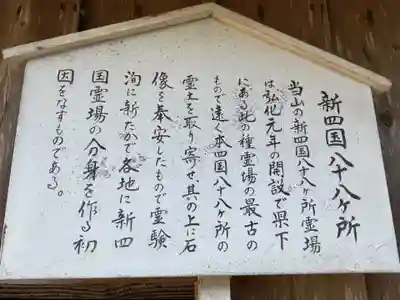 新四国八十八ヶ所
当山の新四国八十八ヶ所霊場
は弘化元年の開設で県下
にある此の種霊場の最古の
もので遠く本四国八十八ヶ所の
霊土を取り寄せ其の上に石
像を奉安したもので霊験
洵に新たかで各地に新四
国霊場の分身を作る初
因をなすものである。